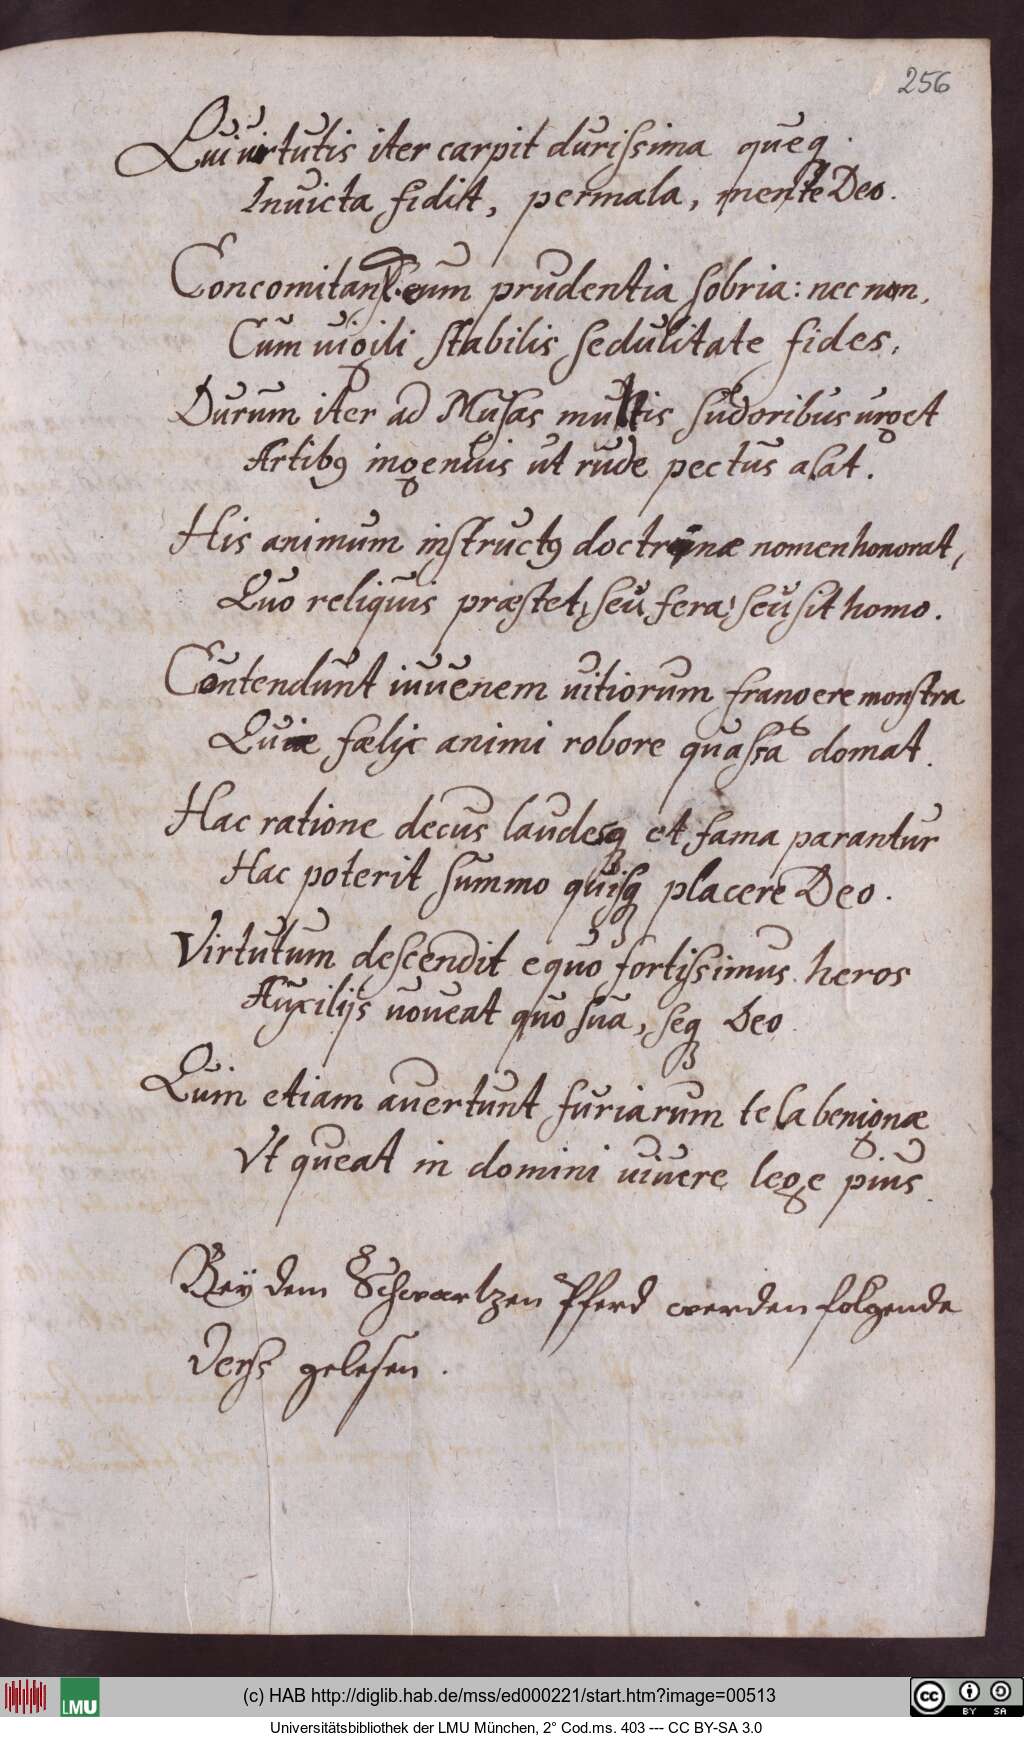 256
Qui uirtutis iter carpit durissima queq.
Inuicta fidit, permala, mente Deo.
Concomitans eum prudentia sobria: nec non,
Cum uigili stabilis sedulitate fides,
Durum iter ad Musas multis sudoribus urget
Artib9 ingenuis ut rude pectus alat.
His animum instruct9 doctrinæ nomen honorat,
Quo reliquis præstet, seu fera, seu sit homo.
Contendunt iuuenem uitiorum frangere monstra
Quæ fælix animi robore quassa domat.
Hac ratione decus laudesq et fama parantur
Hac poterit summo quisq placere Deo.
Virtutum descendit equo fortissimus heros
Auxilijs uoueat quo sua, seq Deo
Quin etiam auertunt furiarum tela benignæ
Ut queat in domini uiuere lege pius.
Bey dem Schwartzen Pferd werden folgende
Verss gelesen.
(c) HAB http://diglib.hab.de/mss/ed000221/start.htm?image=00513
LMU
cc BY SA
Universitätsbibliothek der LMU München, 2° Cod.ms. 403 --- CC BY-SA 3.0